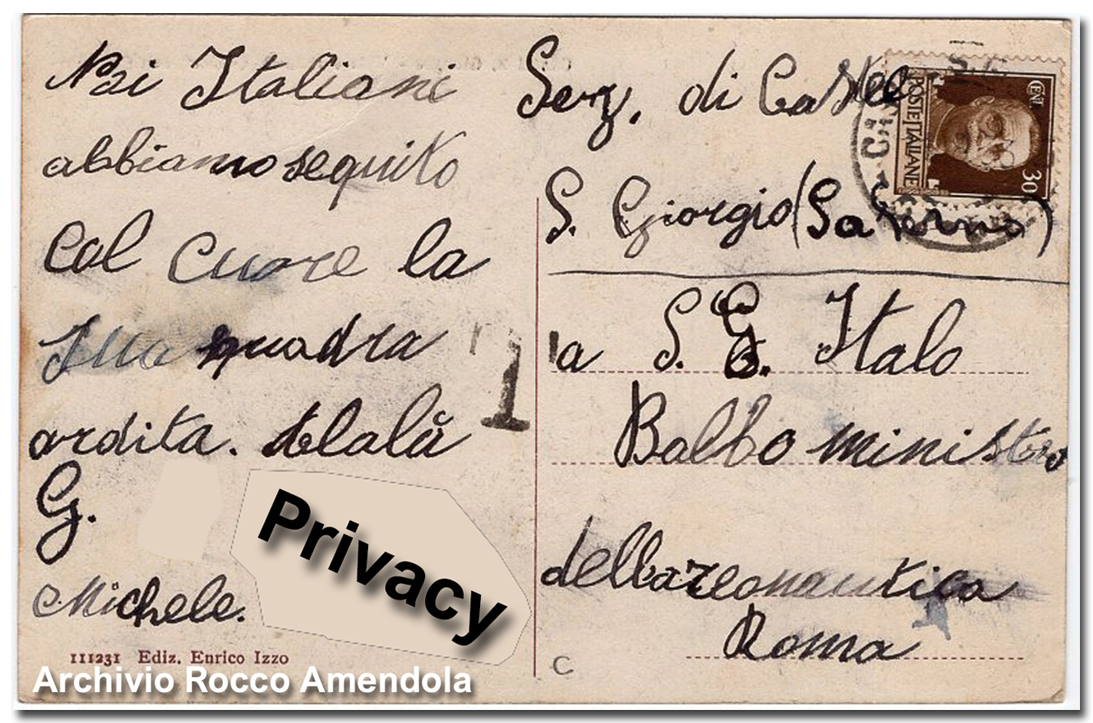 Noi Italiani
abbiamo seguito
Col Cuore la
Sua squadra
ardita. Alalà
G.
Michele.
Privacy
111231 Ediz. Enrico Izzo
Archivio Rocco Amendola
Sez. di Castel
S. Giorgio (Salerno)
a S. E. Italo
Balbo ministero
dellareonautica
Roma
POSTE ITALIANE
CENT. 30
C